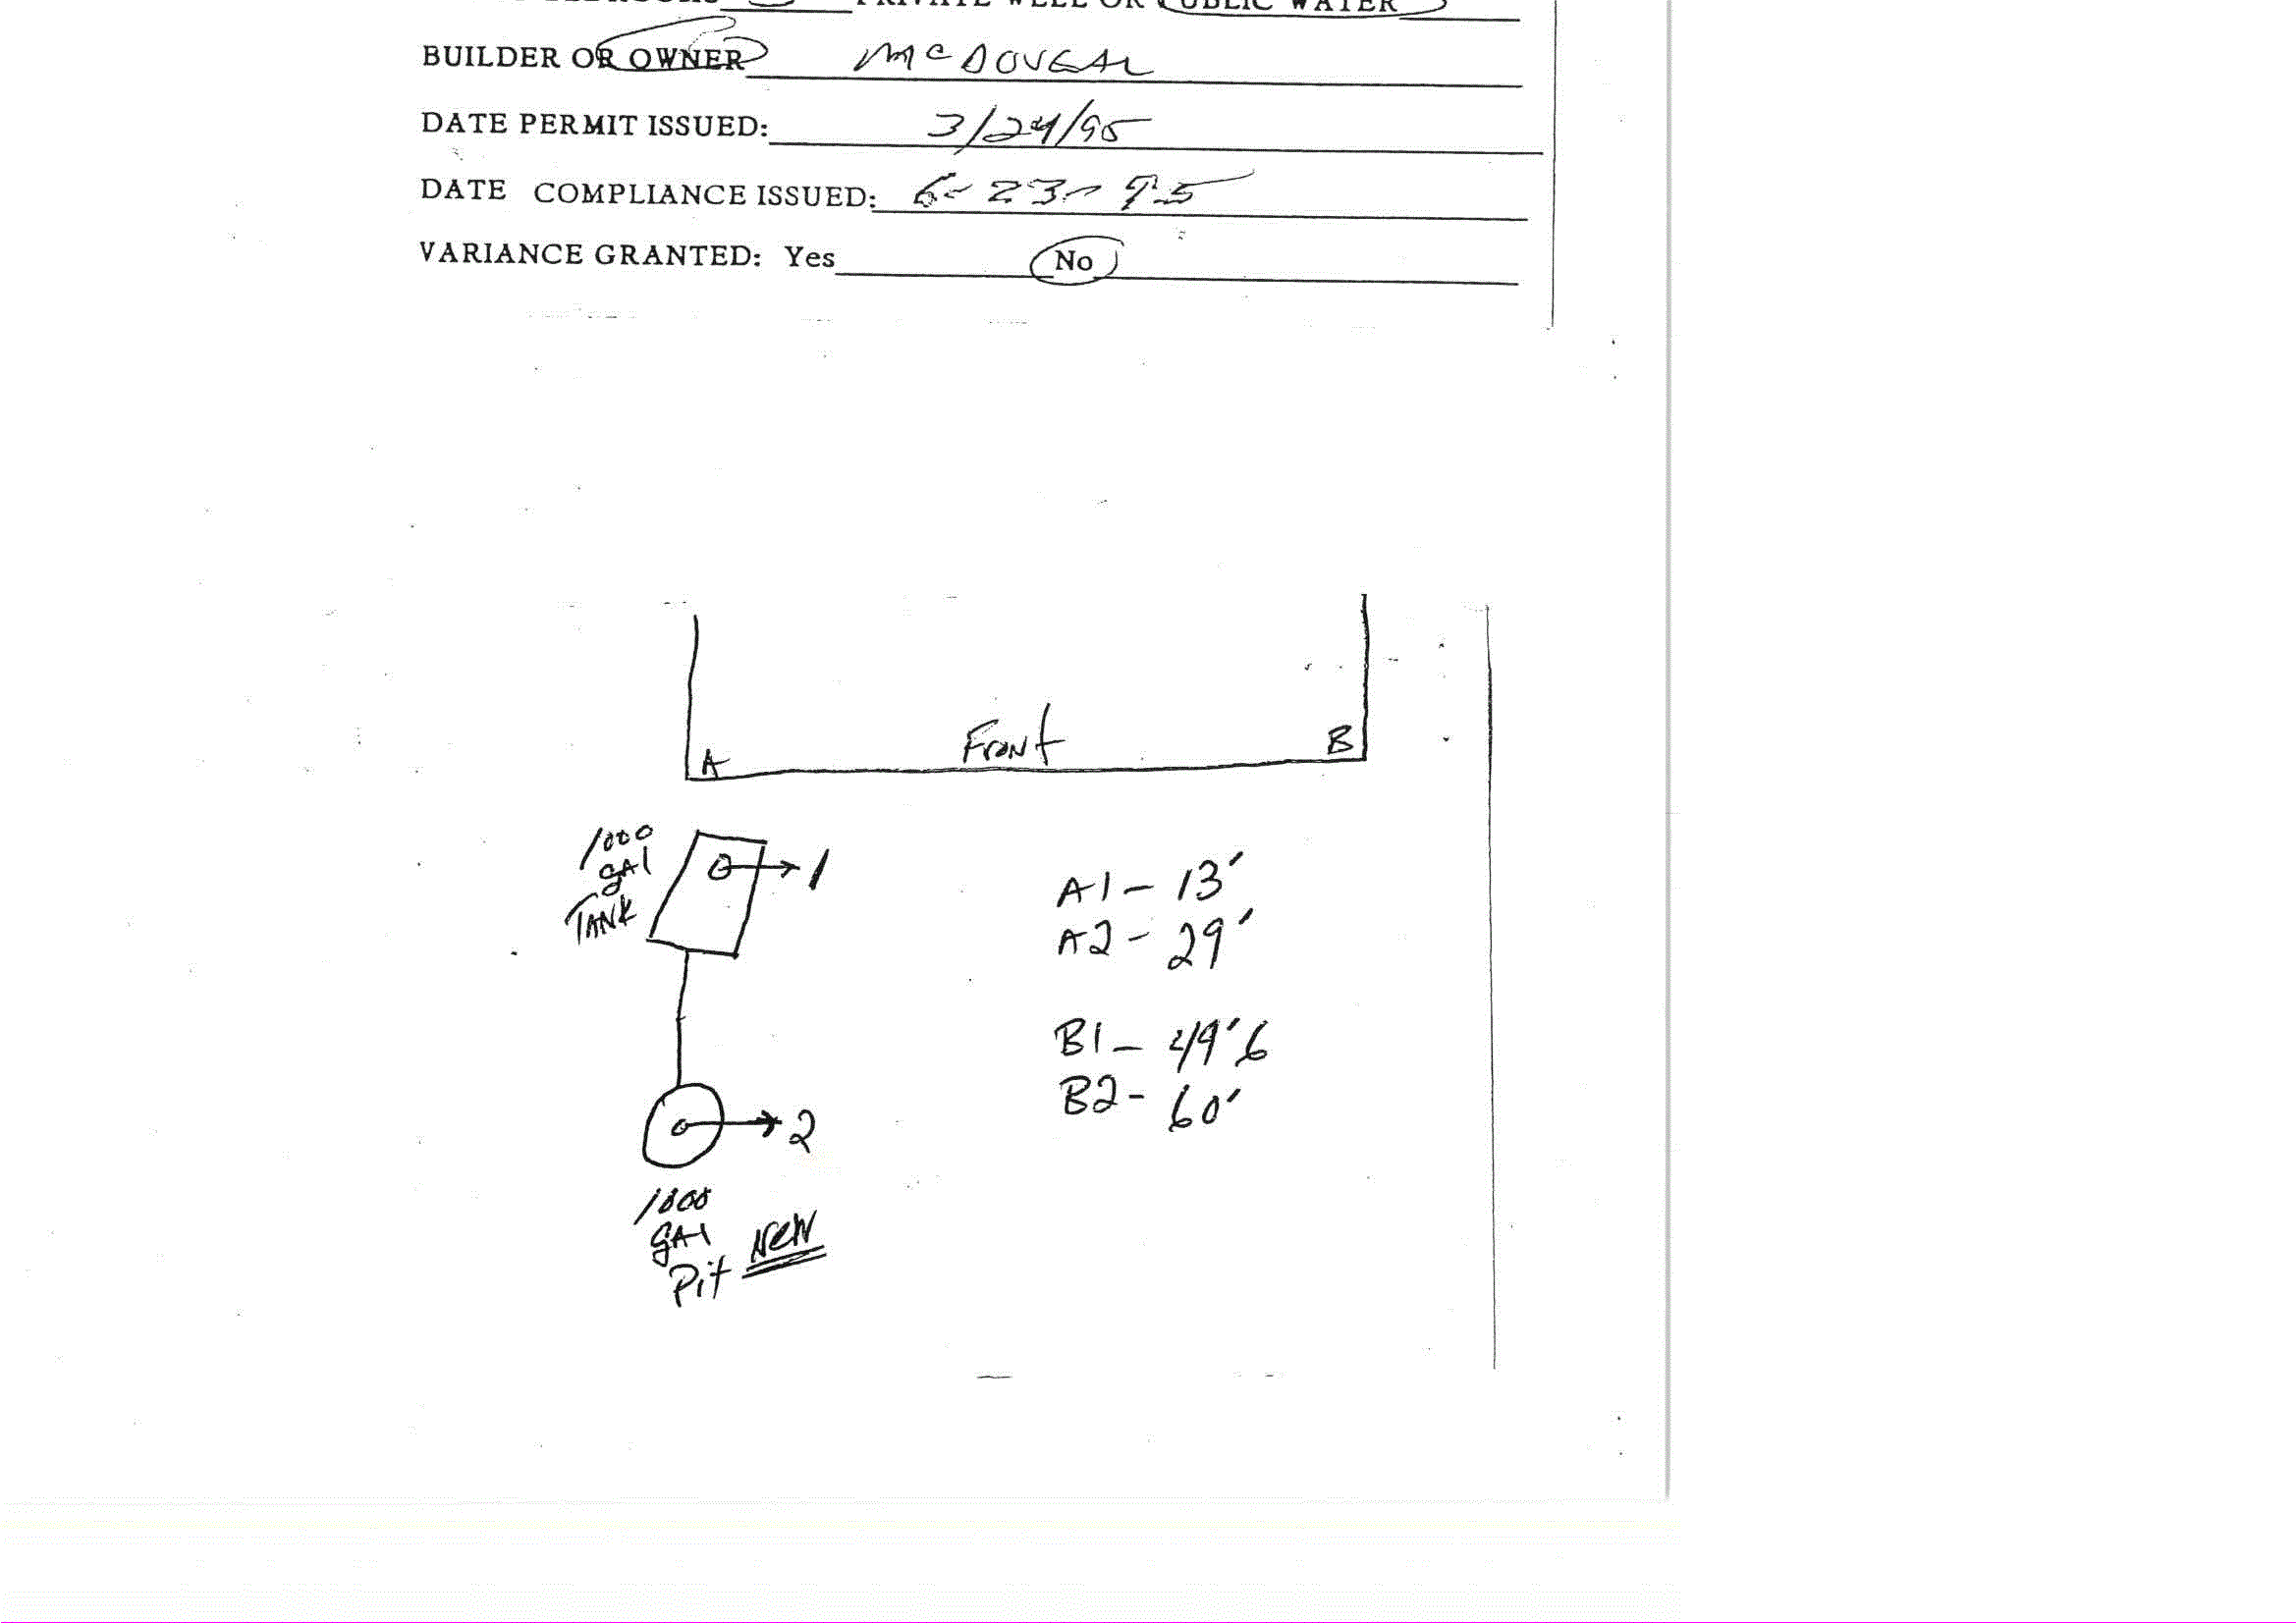 PRIVATE WELL OR PUBLIC WATER
BUILDER OR OWNER McDOUGAL
DATE PERMIT ISSUED: 3/24/95
DATE COMPLIANCE ISSUED: 6-23-95
VARIANCE GRANTED: Yes No
Front
A B
1000
gAl
TANK
1
A1- 13'
A2- 29'
B1- 49'6
B2- 60'
2
1000
gAl
Pit NeW